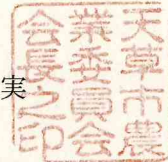 天草市農
業委員会
会長之印
実